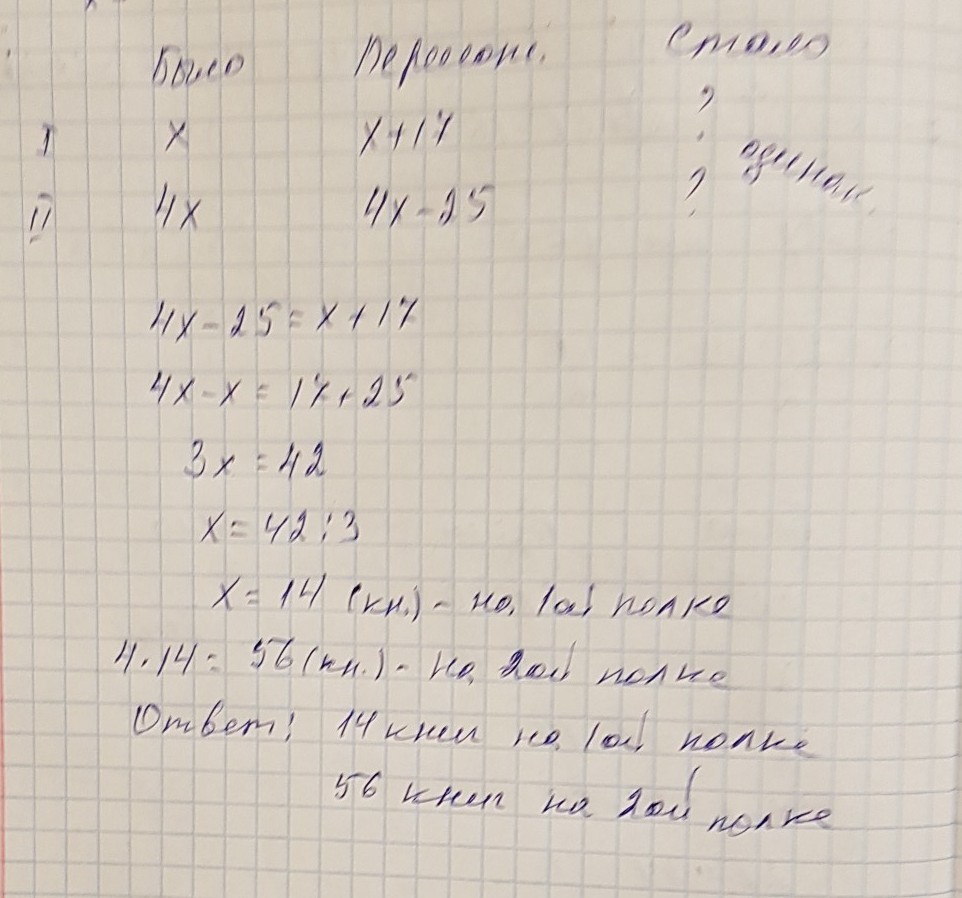 Было Переложи. Стало
I x x+17 ?
II 4x 4x-25 ? одинак.
4x-25=x+17
4x-x=17+25
3x=42
x=42:3
x=14 (кн.)- на 1ой полке
4·14=56(кн.)- на 2ой полке
Ответ: 14 книг на 1ой полке
56 книг на 2ой полке